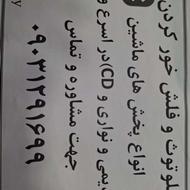 لوتوث و فلش خور کردن
انواع پخش های ماشین
دیمی و نواری و CD) در اسرع و
جهت مشاوره و تماس
۰۹۰۳۱۲۹۱۶۹۹